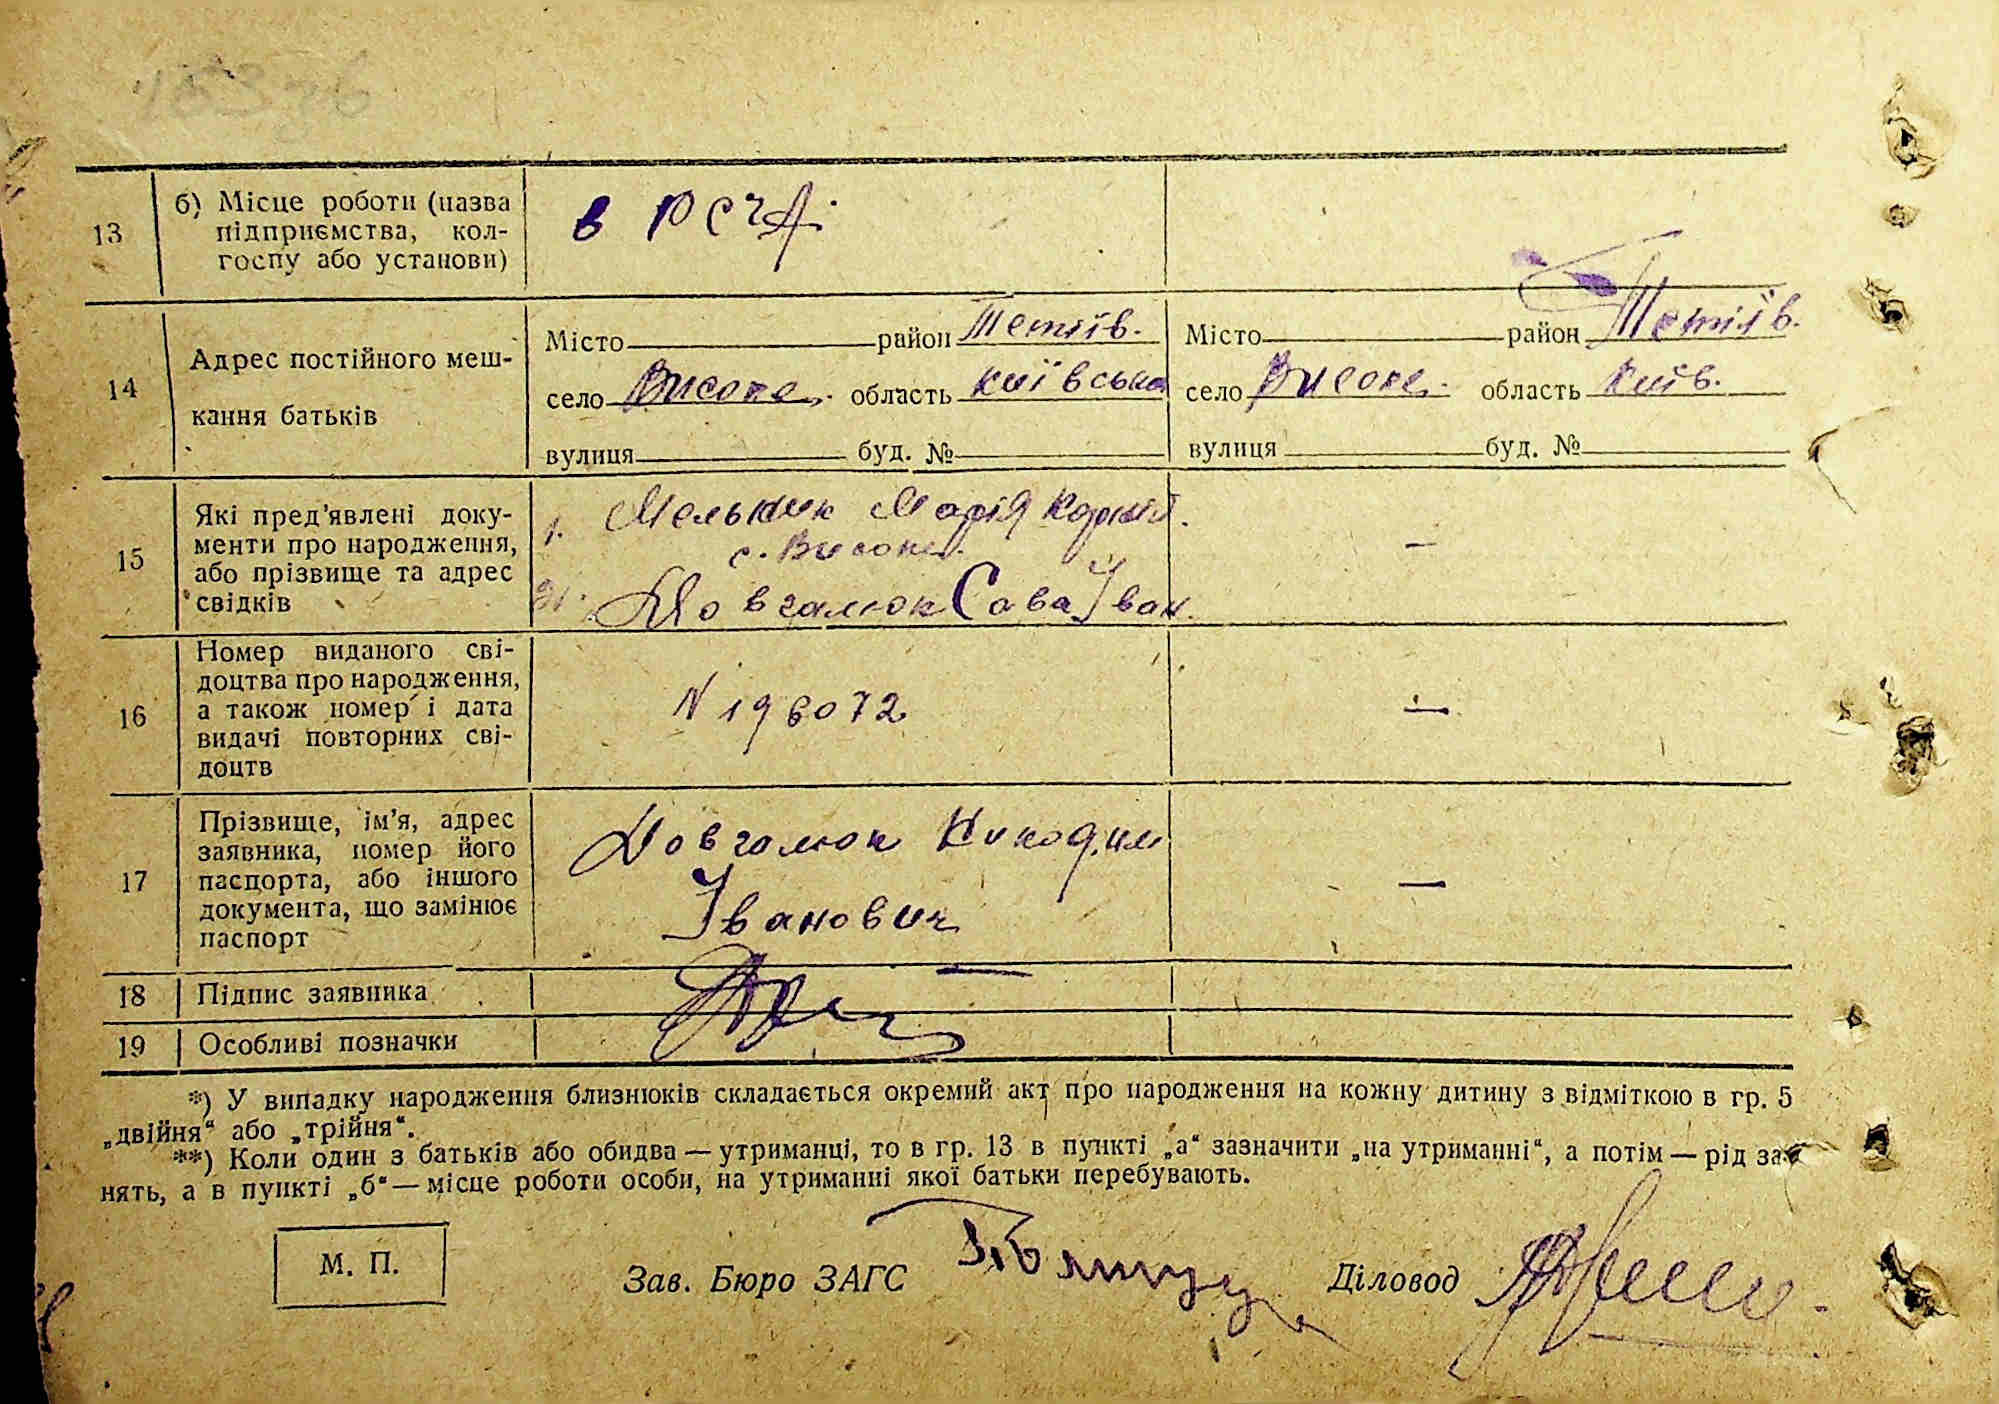 13
б) Місце роботи (назва
підприємства, кол-
госпу або установи)
в РСЧА
14
Адрес постійного меш-
кання батьків
Місто район Тетіїв.
село Високе. область київська
вулиця буд. №
Місто район Тетіїв.
село Високе. область Київ.
вулиця буд. №
15
Які пред'явлені доку-
менти про народження,
або прізвище та адрес
свідків
1. Мельник Марія Корній.
с. Високе.
2. Довгалюк Сава Іван.
—
16
Номер виданого сві-
доцтва про народження,
а також номер і дата
видачі повторних сві-
доцтв
N 196072
—
17
Прізвище, ім'я, адрес
заявника, номер його
паспорта, або іншого
документа, що замінює
паспорт
Довгалюк Никодим
Іванович
—
18
Підпис заявника
19
Особливі позначки
*) У випадку народження близнюків складається окремий акт про народження на кожну дитину з відміткою в гр. 5
„двійня“ або „трійня“.
**) Коли один з батьків або обидва — утриманці, то в гр. 13 в пункті „а“ зазначити „на утриманні“, а потім — рід за-
нять, а в пункті „б“ — місце роботи особи, на утриманні якої батьки перебувають.
М. П.
Зав. Бюро ЗАГС
Діловод